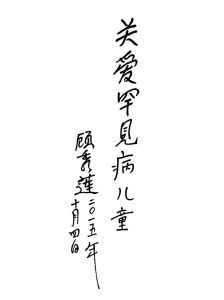 关爱罕見病儿童
顾秀莲 二〇一五年
十月四日